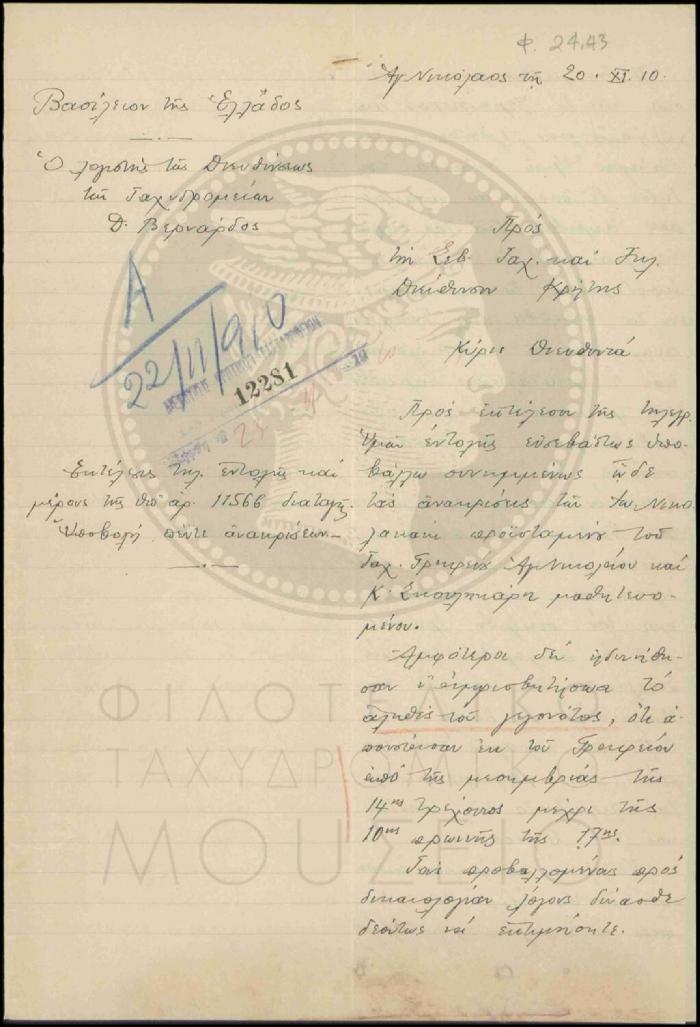 Φ. 24.43
Αγ Νικόλαος τῇ 20. XI. 10.
Βασίλειον τῆς Ἑλλάδος
Ὁ λογιστὴς τῆς Διευθύνσεως
τῶν Ταχυδρομείων
Δ. Βερνάρδος
Πρὸς
τὴν Σεβ. Ταχ. καὶ Τηλ.
Διεύθυνσιν Κρήτης
Α
22/11/910
12281
Κύριε Διευθυντά
Ἐκτέλεσις τηλ. ἐντολῆς καὶ
μέρους τῆς ὑπ' ἀρ. 11566 διαταγῆς.
Ὑποβολὴ πέντε ἀνακρίσεων.
Πρὸς ἐκτέλεσιν τῆς τηλεγρ.
Ὑμῶν ἐντολῆς εὐσεβάστως ὑπο-
βάλλω συνημμένως ὧδε
τὰς ἀνακρίσεις τῶν Ἰω Νικο-
λακάκη προϊσταμένου τοῦ
Ταχ. Γραφείου Ἁγ Νικολάου καὶ
Κ. μαθητευο-
μένου.
Ἀμφότεροι δὲν ἠδυνήθη-
σαν ν' ἀμφισβητήσωσι τὸ
ἀληθὲς τοῦ γεγονότος, ὅτι ἀ-
πουσίασαν ἐκ τοῦ Γραφείου
ἀπὸ τῆς μεσημβρίας τῆς
14ης τρέχοντος μέχρι τῆς
10ης πρωινῆς τῆς 17ης.
Τοὺς προβαλλομένους πρὸς
δικαιολογίαν λόγους δύνασθε
δεόντως νὰ ἐκτιμήσητε.
ΦΙΛΟΤΕΛΙΚΟ
ΤΑΧΥΔΡΟΜΙΚΟ
ΜΟΥΣΕΙΟ